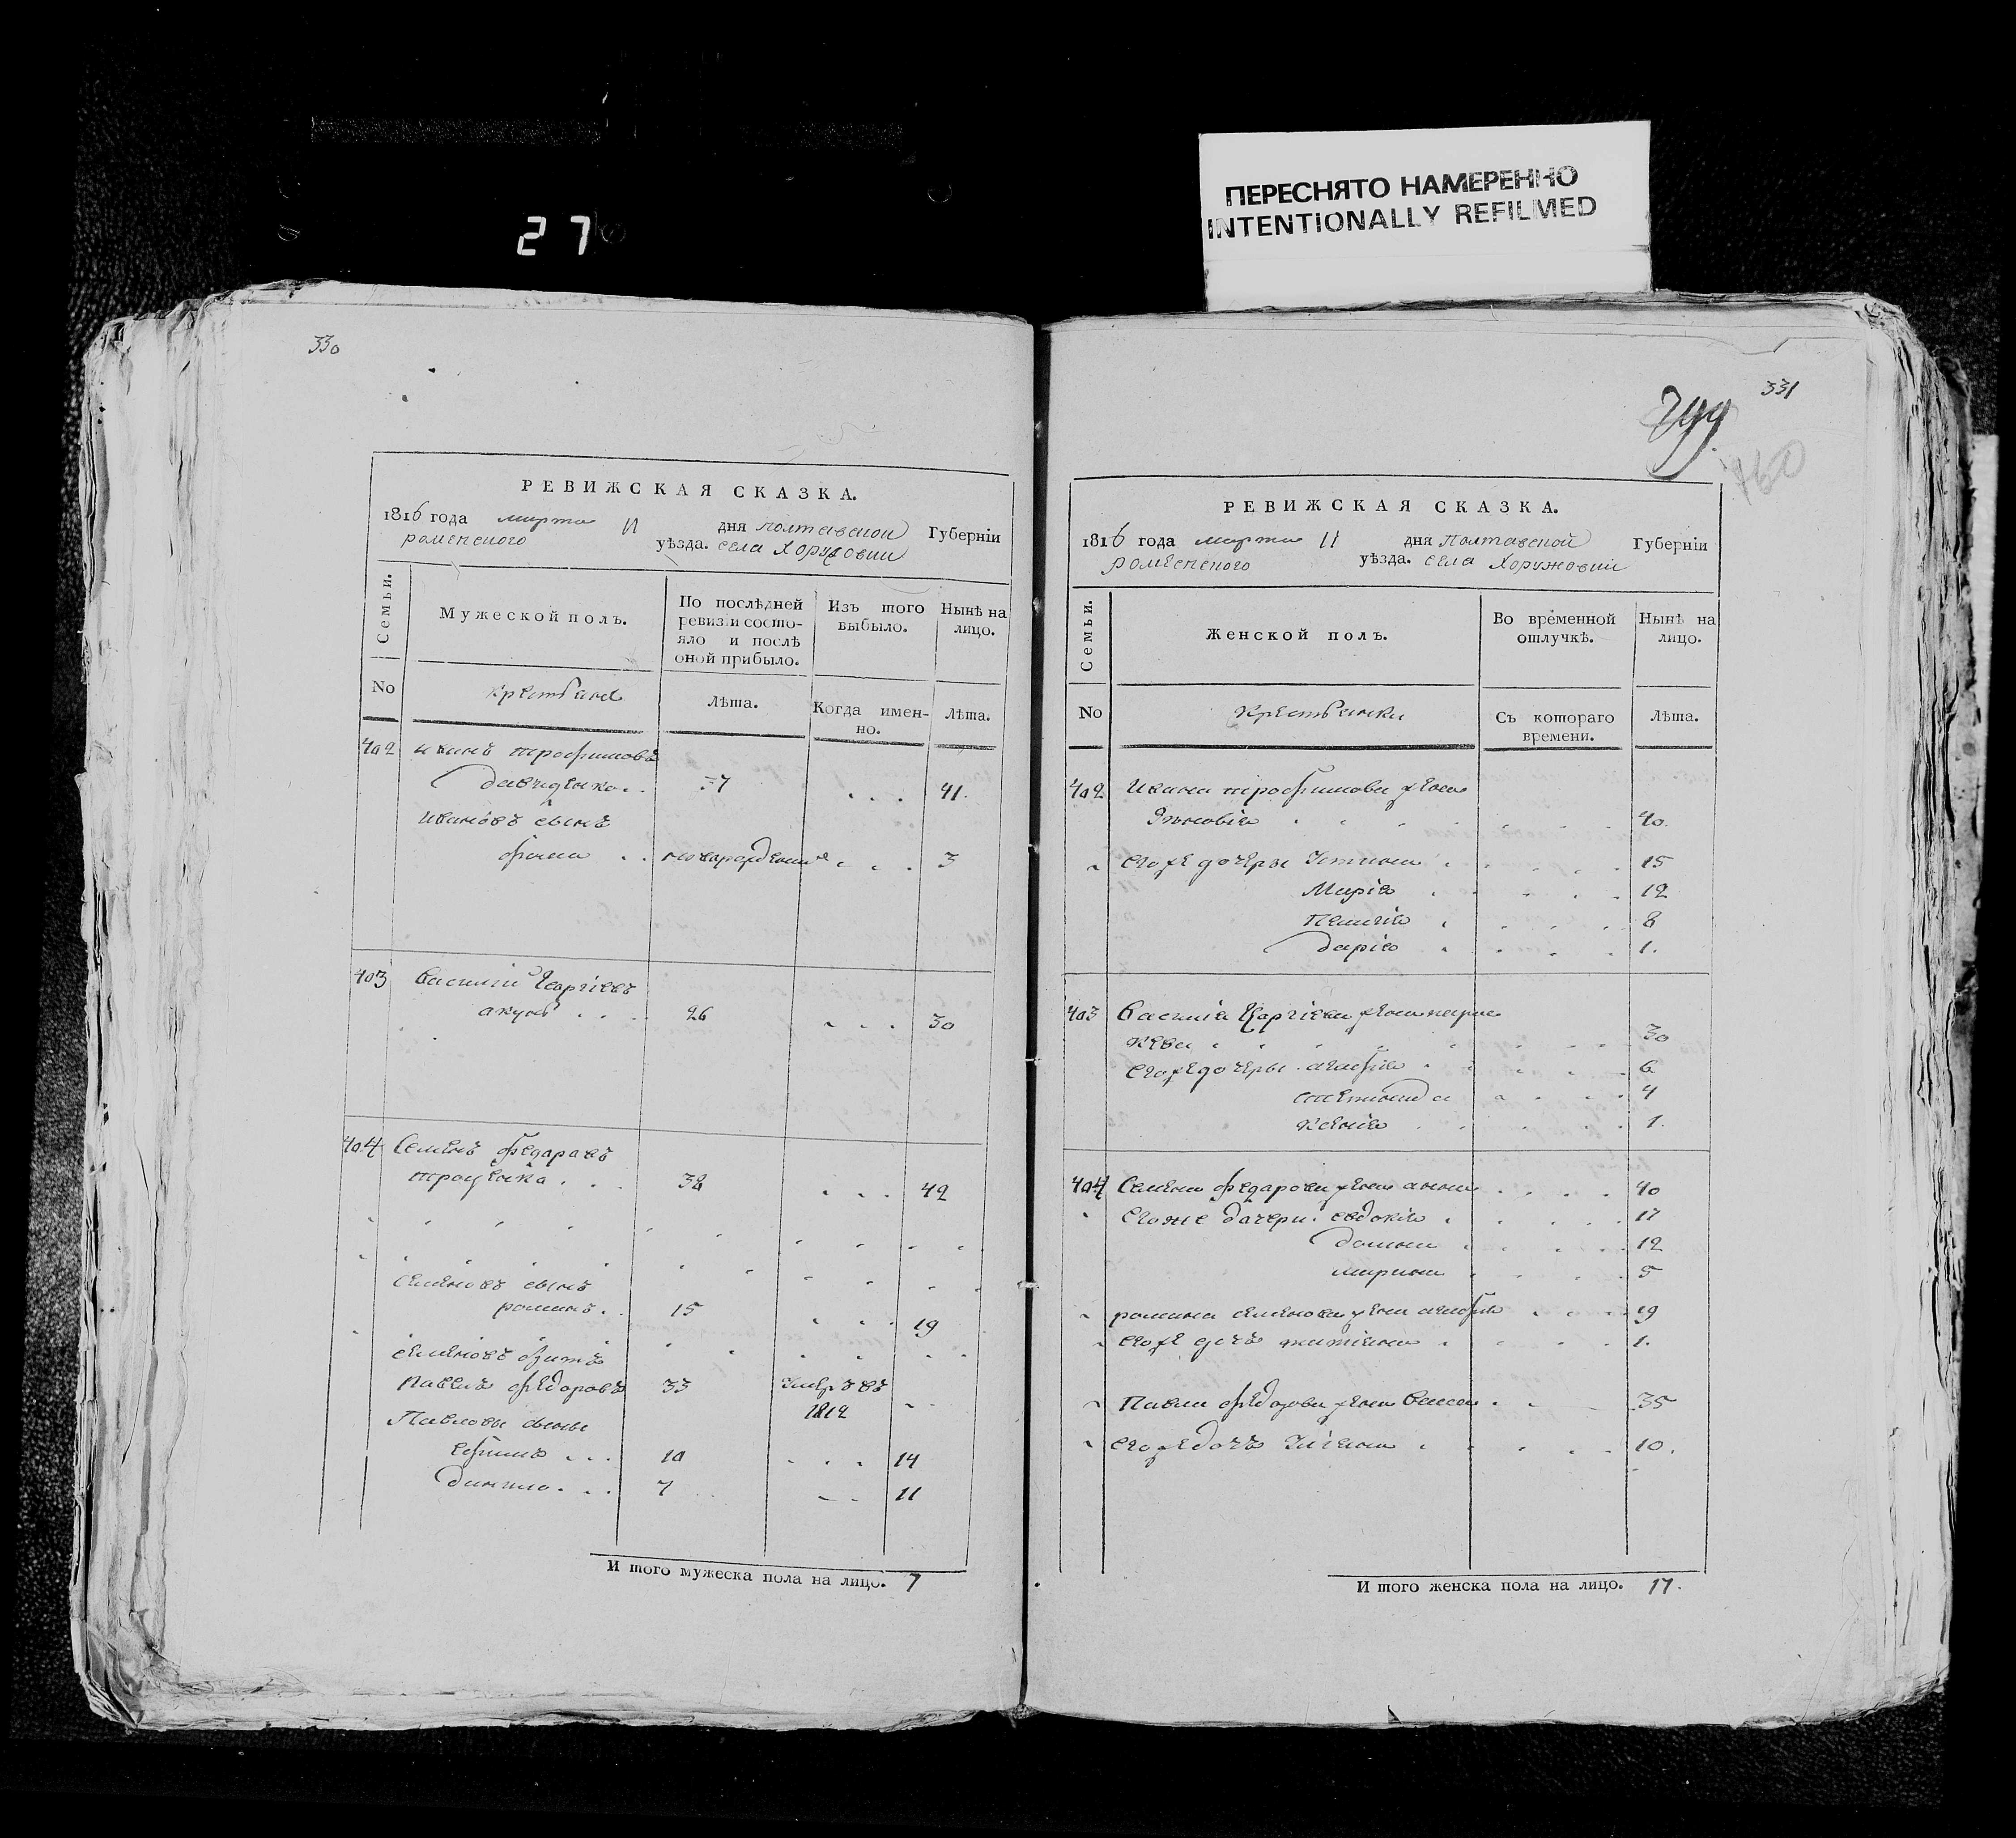 27
ПЕРЕСНЯТО НАМЕРЕННО
INTENTIONALLY REFILMED
330
РЕВИЖСКАЯ СКАЗКА.
1816 года марта 11 дня полтавской Губерніи
роменского уѣзда. села Хоружовки
Семьи.
Мужеской полъ.
По послѣдней ревизіи состояло и послѣ оной прибыло.
Изъ того выбыло.
Нынѣ на лицо.
No
крестьяне
Лѣта.
Когда именно.
Лѣта.
402 иванъ трофимовъ
давиденко . . 37 . . . 41.
Ивановъ сынъ
фома . . новорожденный . . . 3
403 Василий Георгіевъ
. . . 26 . . . 30
404 Семенъ федаравъ
троценко . . . 38 . . . 42
семеновъ сынъ
романъ . . 15 . . . 19
семеновъ братъ
павелъ федоровъ 33 умре въ
1812
Павловы сыны
ефимъ . . . 10 . . . 14
данило . . . 7 . . 11
И того мужеска пола на лицо. 7
331
299
760
РЕВИЖСКАЯ СКАЗКА.
1816 года марта 11 дня Полтавской Губерніи
роменского уѣзда. села Хоружовки
Семьи.
Женской полъ.
Во временной отлучкѣ.
Нынѣ на лицо.
No
крестьянки
Съ котораго времени.
Лѣта.
402 Ивана трофимова жена
Зѣновія 40.
его же дочеры Устина 15
Марія 12
Пелагія 8
дарія 1.
403 Василія Георгіева жена параскева 30
его же дочеры агафія 6
4
ксенія 1.
404 Семена федарова жена анна 40
его же дачери евдокія 17
домна 12
марина 5
романа семенова жена агафія 19
его же дочь татіана 1.
Павла федорова жена 35
его же дочь Уліана 10.
И того женска пола на лицо. 17.